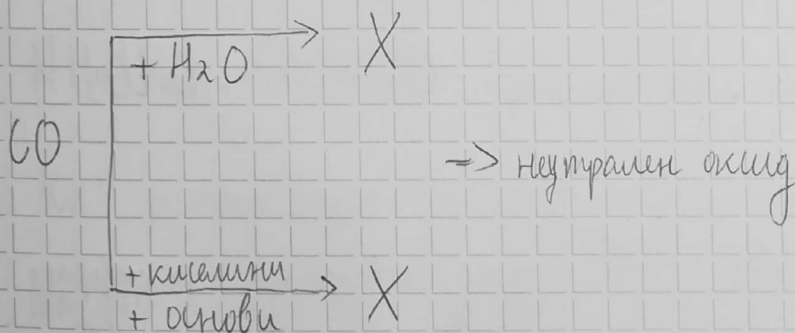 + H2O
X
CO
-> неутрален оксид
+ киселини
+ основи
X